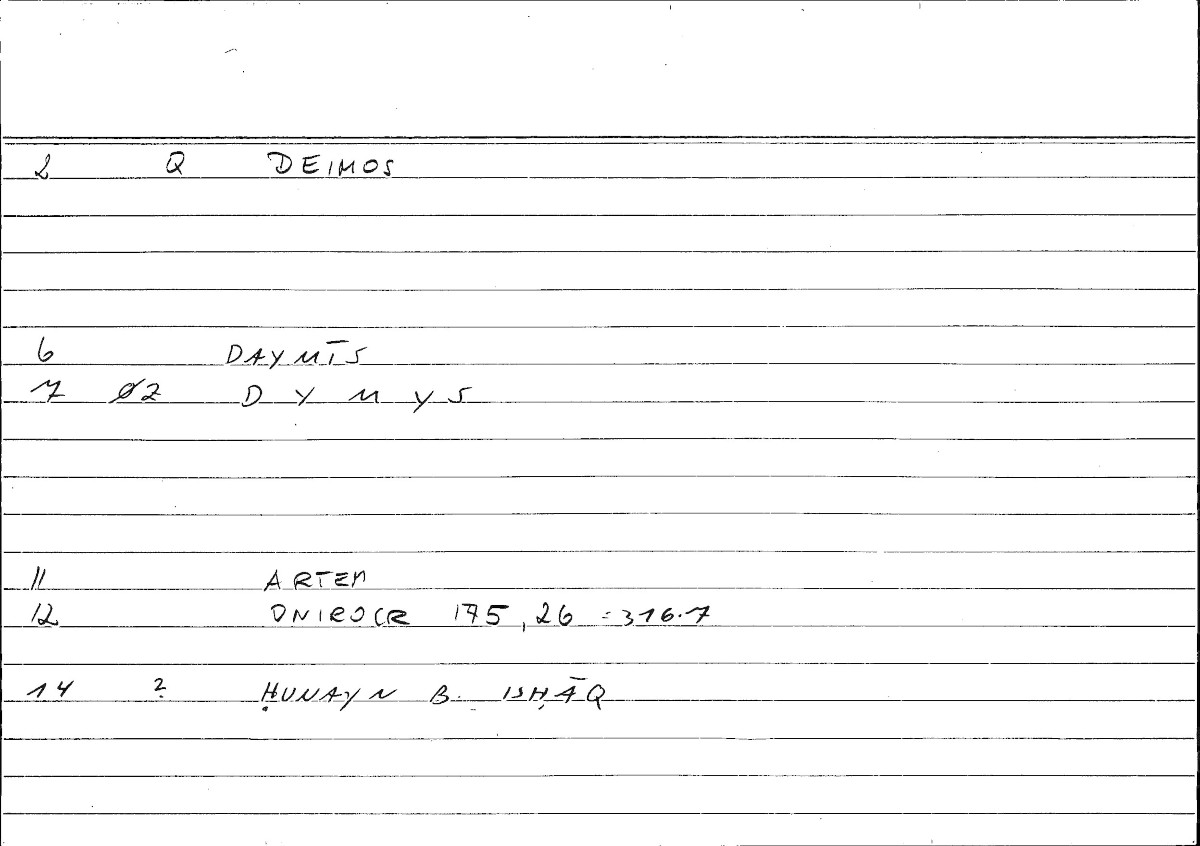 2 Q DEIMOS
6 DAYMĪS
7 Ø2 D Y M Y S
11 ARTEM
12 ONIROCR 175,26 = 316.7
14 ? ḤUNAYN B. ISḤĀQ